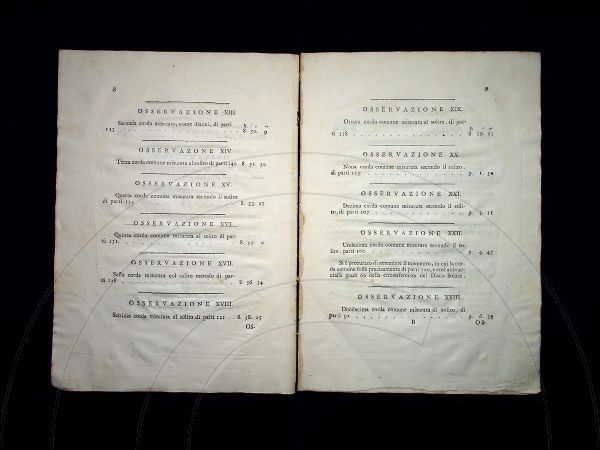 8
OSSERVAZIONE XIII.
Seconda corda misurata, come dianzi, di parti
143 . . . . . . . . . . . . . . 8. 50. 9
OSSERVAZONE XIV.
Terza corda comune misurata al solito di parti 140 8. 51. 50
OSSERVAZIONE XV.
Quarta corda comune misurata secondo il solito
di parti 135 . . . . . . . . . . . . 8. 53. 27
OSSERVAZIONE XVI.
Quinta corda comune misurata al solito di par-
ti 131. . . . . . . . . . . . . . 8. 55. 0
OSSERVAZIONE XVII.
Sesta corda misurata col solito metodo di par-
ti 128 . . . . . . . . . . . . . . 8. 56. 14
OSSERVAZIONE XVIII.
Settima corda misurata al solito di parti 121 . . 8. 58. 25
OS-
9
OSSERVAZIONE XIX.
Ottava corda comune misurata al solito, di par-
h ' "
ti 118 . . . . . . . . . . . . . . 8. 59.
OSSERVAZIONE XX.
Nona corda comune misurata secondo il solito,
di parti . . . . . . . . . . . . . 9. 1. 30
OSSERVAZIONE XXI.
Decima corda comune misurata secondo il soli-
to, di parti 107 . . . . . . . . . . . 9. 3. 11
OSSERVAZIONE XXII.
Undecima corda comune misurata secondo il so-
lito, parti 100 . . . . . . . . . . . . 9. 4. 45
Si è procurato di attendere il momento, in cui la cor-
da comune fosse precisamente di parti 100, e così abbrac-
ciasse gradi 60 della circonferenza del Disco Solare.
OSSERVAZIONE XXIII.
Duodecima corda comune misurata al solito, di
parti 92 . . . . . . . . . . . . . 9. 6.
B
OS-